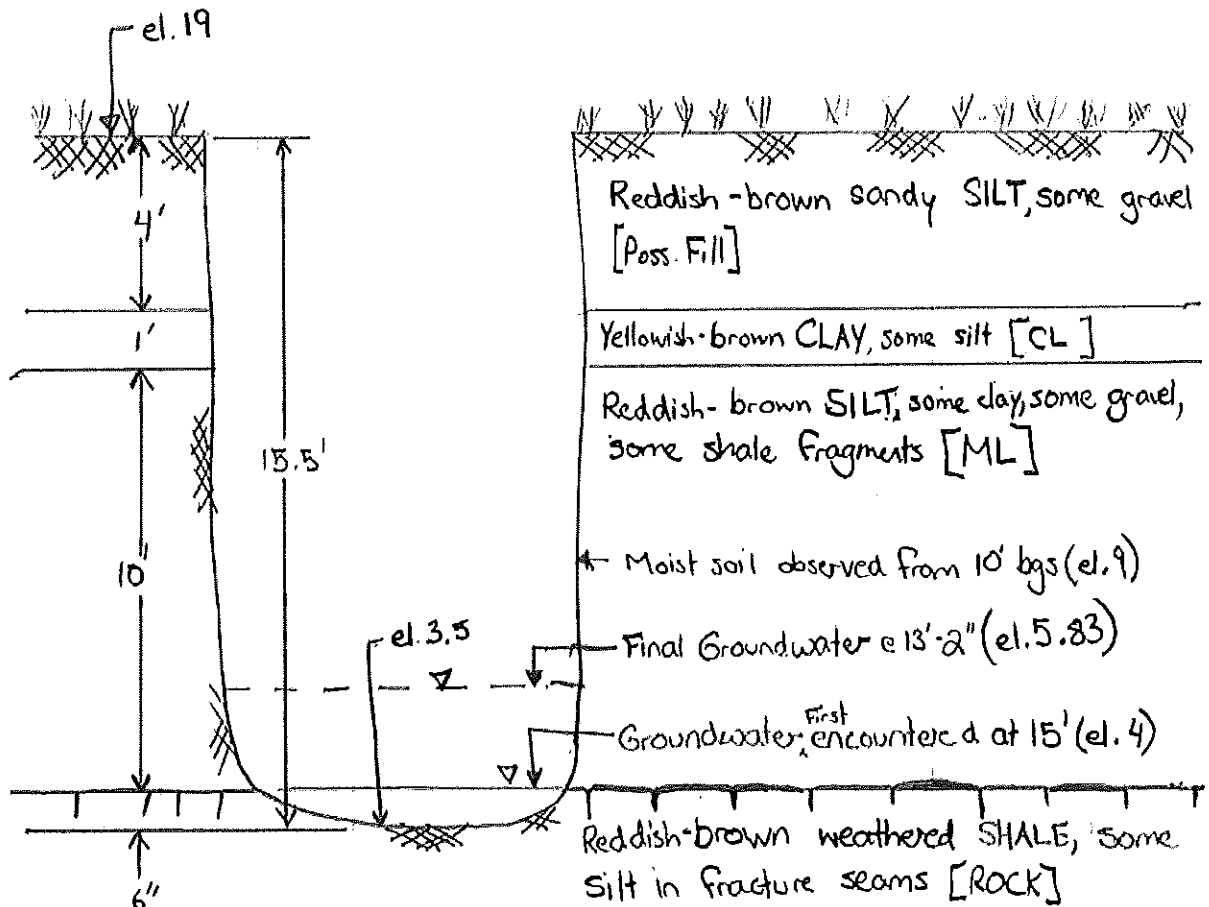 el. 19
4'
Reddish-brown sandy SILT, some gravel
[Poss. Fill]
1'
Yellowish-brown CLAY, some silt [CL]
Reddish-brown SILT, some clay, some gravel,
some shale fragments [ML]
15.5'
10'
Moist soil observed from 10' bgs (el. 9)
el. 3.5
Final Groundwater @ 13'-2" (el. 5.83)
Groundwater First encountered at 15' (el. 4)
Reddish-brown weathered SHALE, some
silt in fracture seams [ROCK]
6"